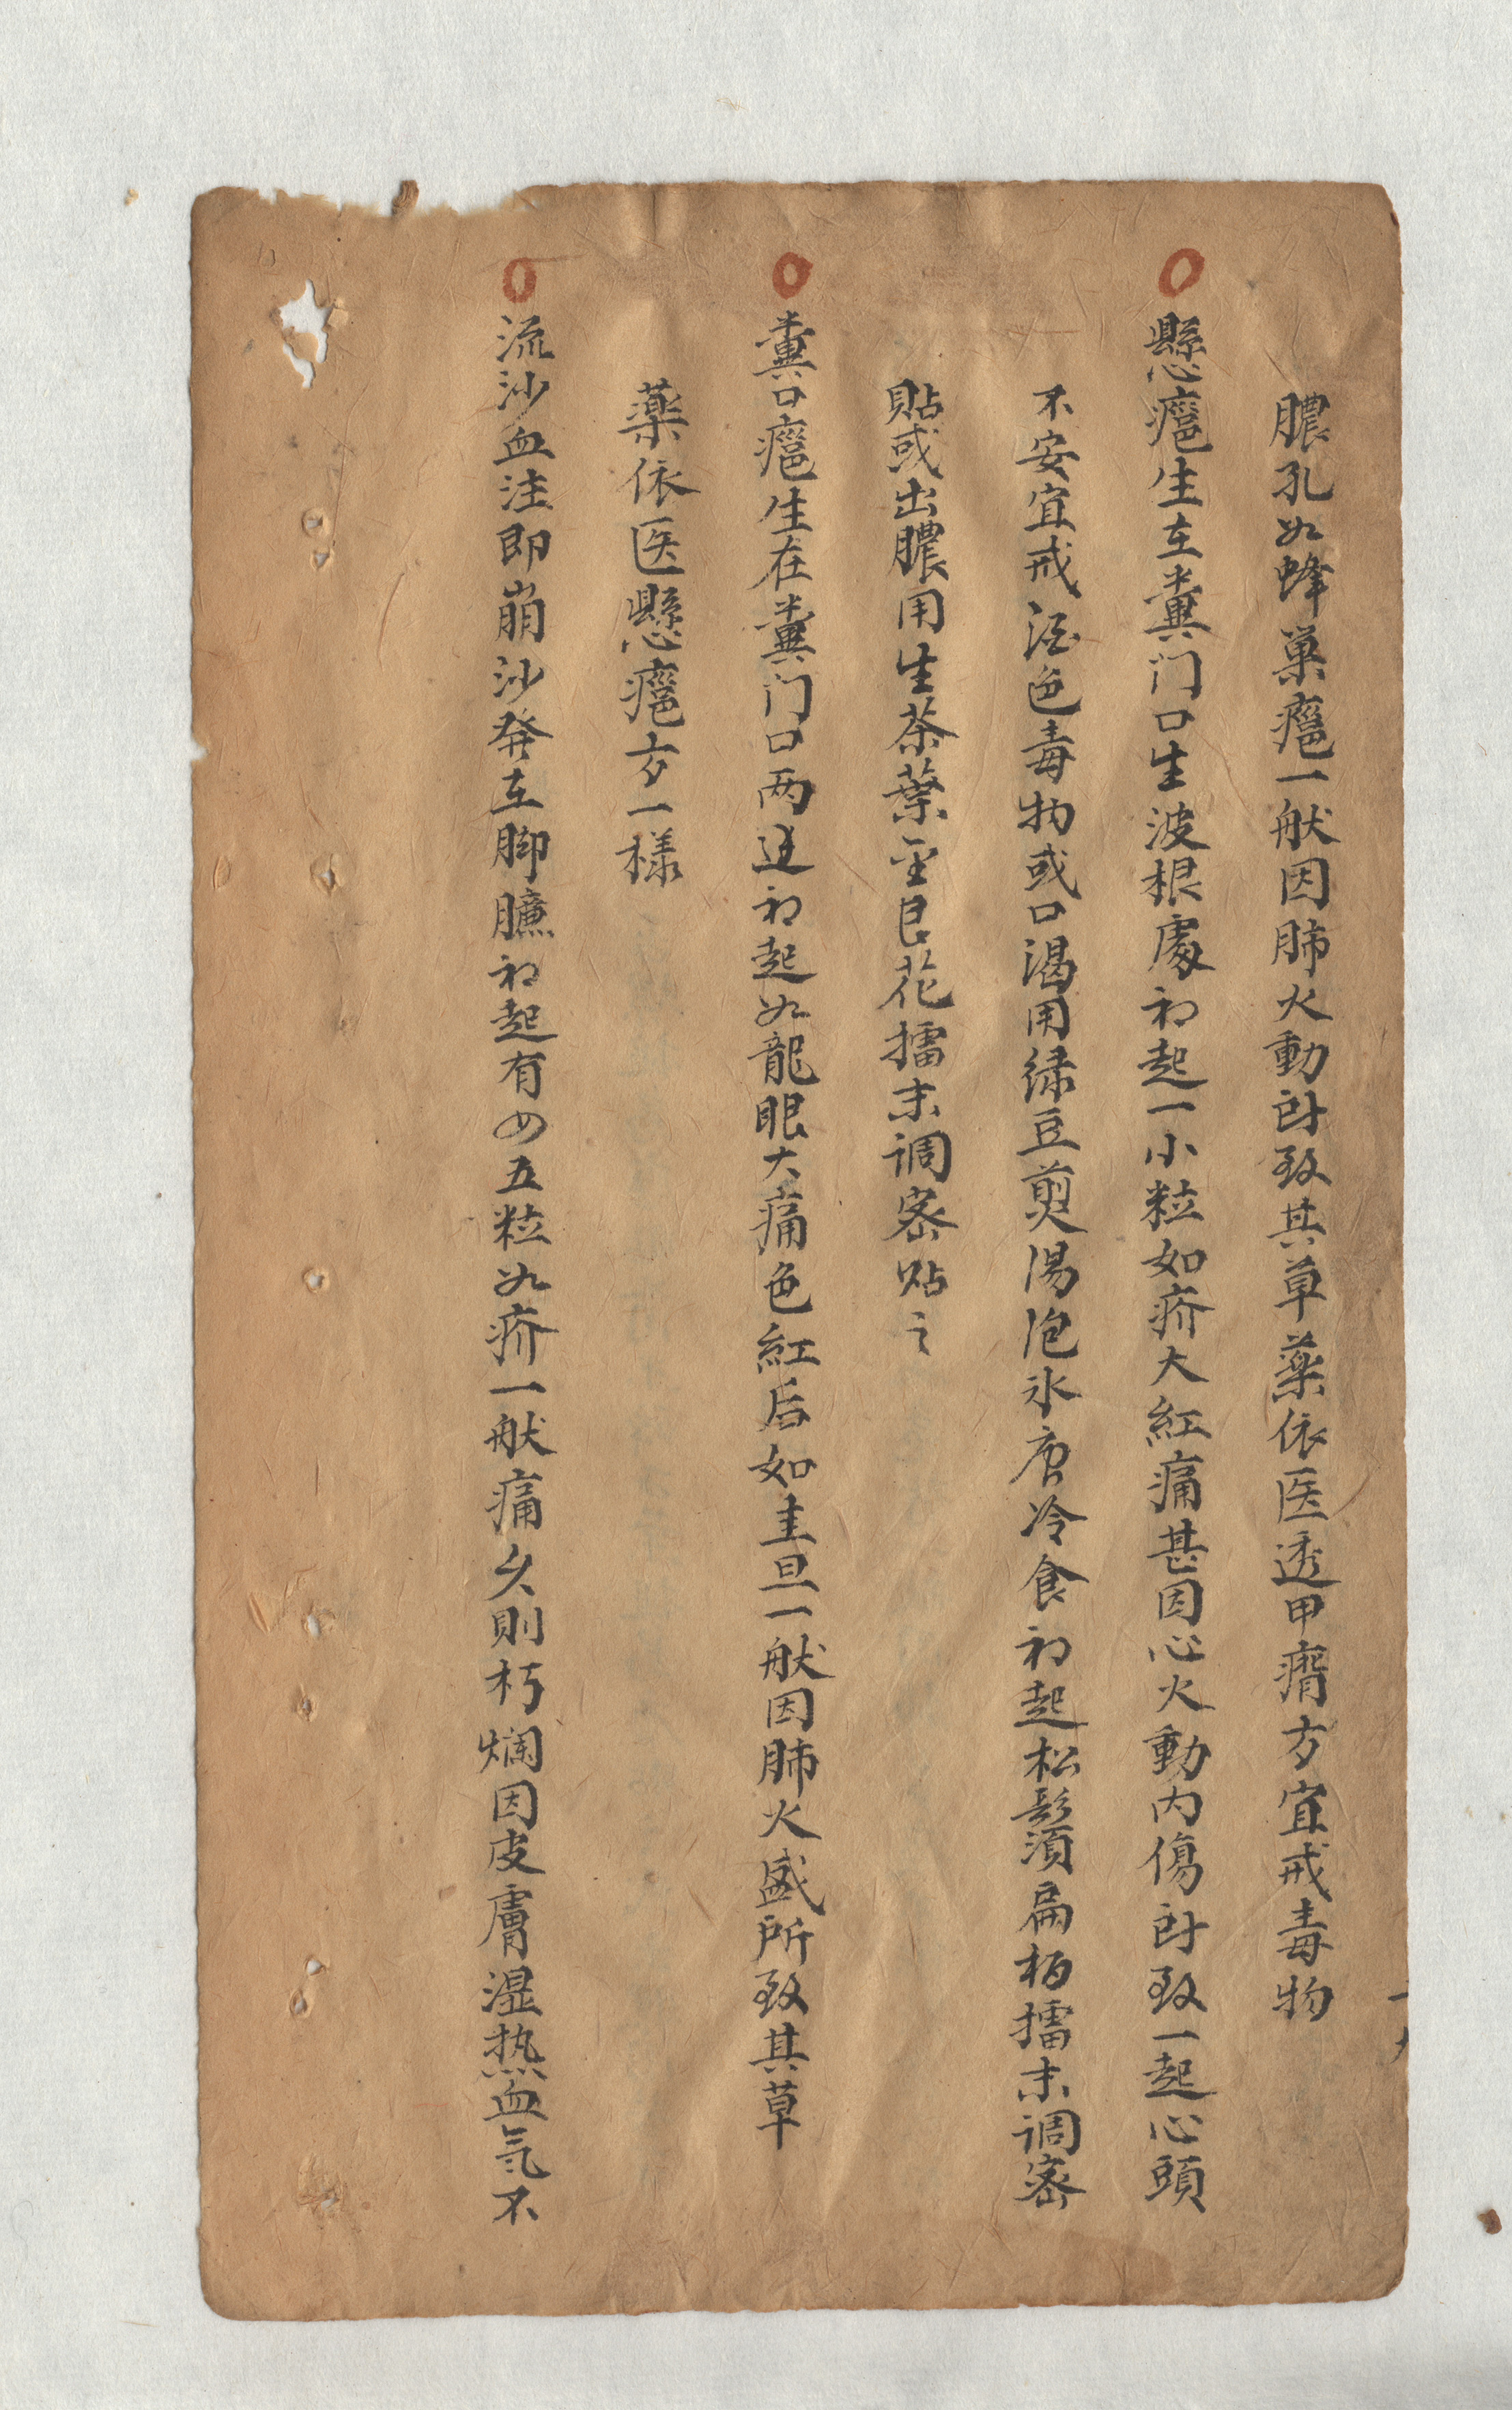 膿孔如蜂巢癰一般因肺火動所致其草藥依医透甲癰方宜戒毒物
懸癰生在糞门口生波根處初起一小粒如疥大紅痛甚因心火動内傷所致一起心頭
不安宜戒酒色毒物或口渴用绿豆煎湯泡氷唐冷食初起松鬚扁柏擂末调密
貼或出膿用生茶葉金艮花擂末调密贴之
糞口癰生在糞门口两边初起如龍眼大痛色紅后如圭旦一般因肺火盛所致其草
藥依医懸癰方一樣
流沙血注即崩沙発在脚臁初起有四五粒如疥一般痛久則朽爛因皮膚湿热血氣不